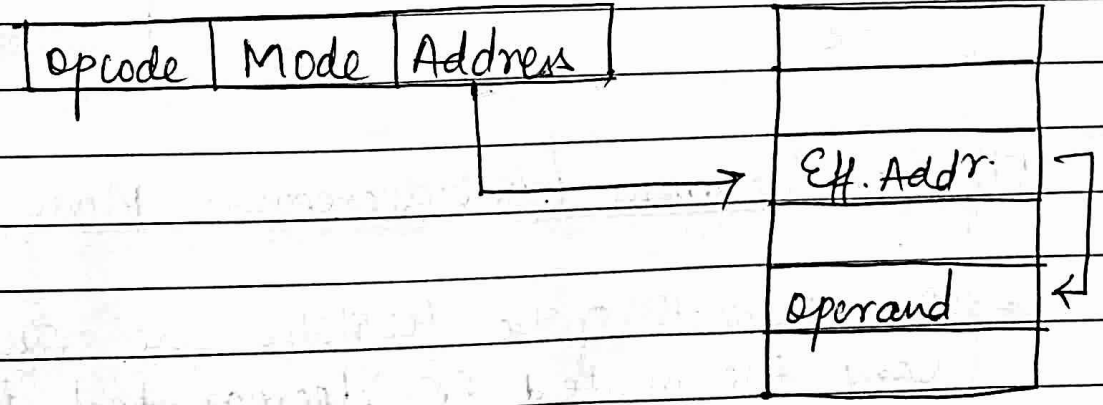 Opcode Mode Address
Eff. Addr.
Operand